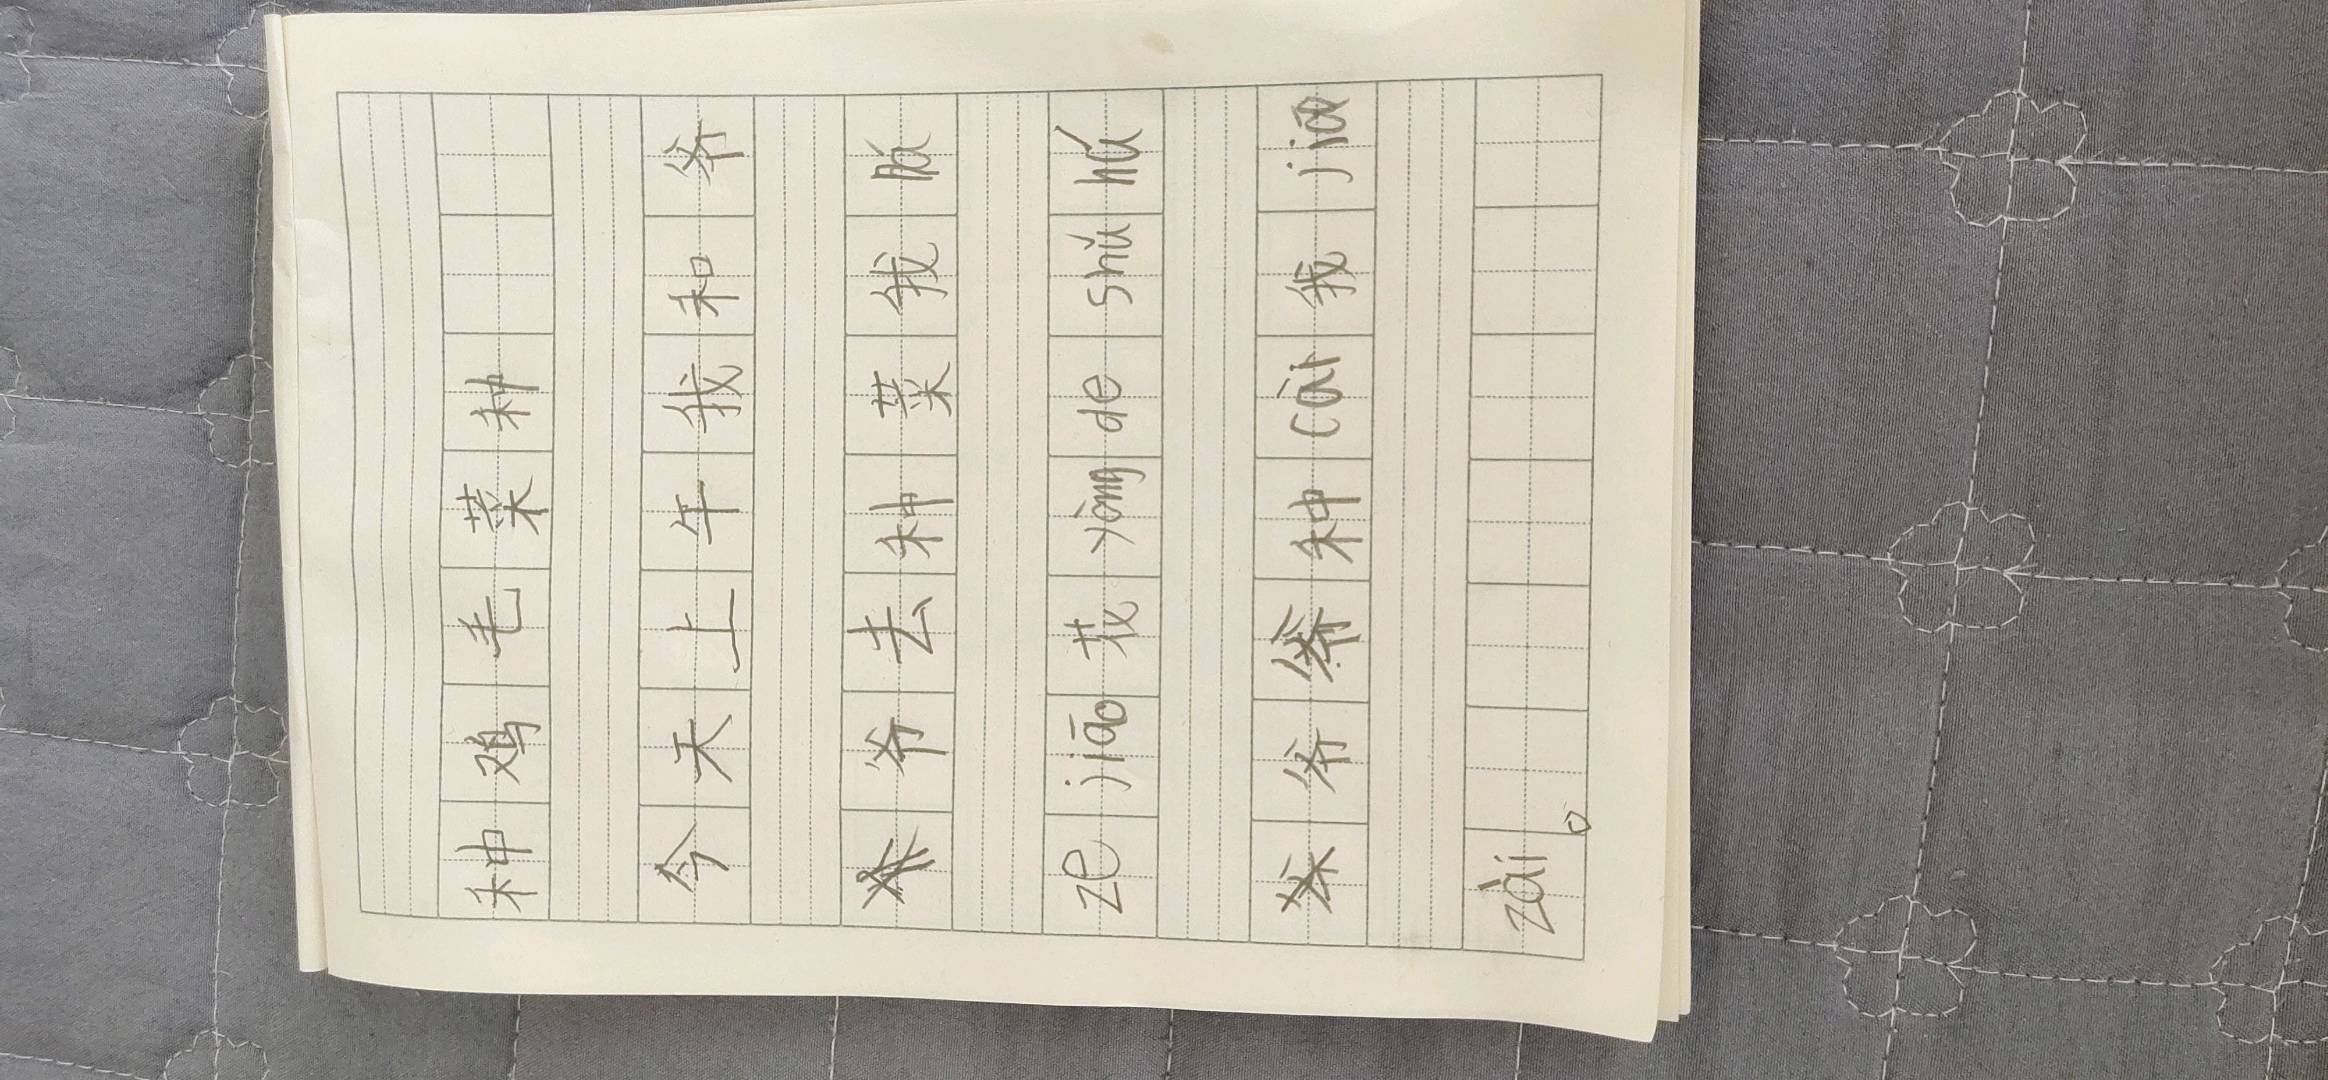 种鸡毛菜种
今天上午我和爷
爷去种菜我bá
ze jiāo花yòng de shú hú
爷爷种cài我jiā
zài。